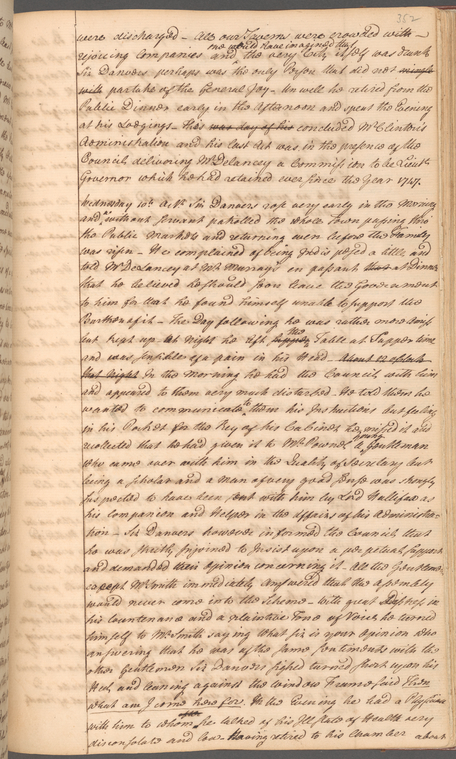 362
were discharged – All our Taverns were crowded with –
rejoicing Companies and one would have imagined that the very City itself was drunk
Sir Danvers perhaps was the only Person that did not mingle
with partake of the General Joy – Unwell he retired from the
Public Dinner early in the Afternoon and spent the Evening
at his Lodgings – This was day of his concluded Mr Clinton's
Administration and his last Act was in the presence of the
Council delivering Mr Delancey a Commission to be Lieut.
Governor which he had retained ever since the Year 1747.
Wednesday Sir Danvers rose very early in the Morning
and without servant patrolled the whole Town passing thro
the Public Markets and returning even before the Family
was risen – He complained of being indisposed a little and
told Mr DeLancey at Mr Murray's in passant at Dinner
that he believed he should soon leave the Government
to him for that he found himself unable to support the
Burthen of it – The Day following he was rather more
but kept up at Night he left the Supper Table at Supper time
and was sensible of a pain in his Head – About 12 oClock
that Night In the Morning he had the Council with him
and appeared to them very much disturbed – He told them he
wanted to communicate to them his Instructions but feeling
in his Pocket for the Key of his Cabinet he missed it and
recollected that he had given it to Mr Pownel a young Gentleman
who came over with him in the Quality of Secretary but
being a Scholar and a Man of very good Sense was shrewdly
suspected to have been sent with him by Lord Hallifax as
his companion and Helper in the Affairs of his Administra-
tion – Sir Danvers however informed the Council that
he was strictly injoined to insist upon a perpetual Support
and demanded their opinion concerning it. All the Gentlemen
except Mr Smith immediately answered that the Assembly
would never come into the Scheme – With great distress in
his Countenance and a plaintive Tone of Voice he turned
himself to Mr Smith saying What Sir is your Opinion who
answering that he was of the same Sentiments with the
other Gentlemen Sir Danvers sighed turned short upon his
Heel, and leaning against the Window Frame said Then
what am I come here for. In the Evening he had a Physician
with him to whom he talked of his Ill state of Health very
disconsolate and low – Having retired to his Chamber about